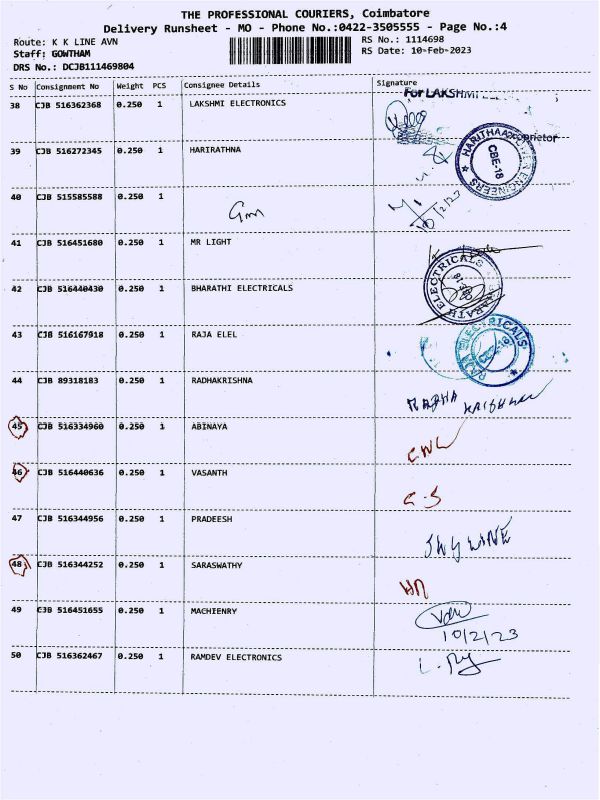 THE PROFESSIONAL COURIERS, Coimbatore
Delivery Runsheet - MO - Phone No.:0422-3505555 - Page No.:4
Route: K K LINE AVN
RS No.: 1114698
Staff: GOWTHAM
RS Date: 10-Feb-2023
DRS No.: DCJB111469804
S No Consignment No Weight PCS Consignee Details Signature
38 CJB 516362368 0.250 1 LAKSHMI ELECTRONICS
For LAKSHMI
Proprietor
39 CJB 516272345 0.250 1 HARIRATHNA
CBE-18
40 CJB 515585588 0.250 1
10/2/23
41 CJB 516451680 0.250 1 MR LIGHT
42 CJB 516440430 0.250 1 BHARATHI ELECTRICALS
ELECTRICALS
43 CJB 516167918 0.250 1 RAJA ELEL
RAJA ELECTRICALS
44 CJB 89318183 0.250 1 RADHAKRISHNA
RADHA KRISHNAN
45 CJB 516334960 0.250 1 ABINAYA
46 CJB 516440636 0.250 1 VASANTH
G.S
47 CJB 516344956 0.250 1 PRADEESH
48 CJB 516344252 0.250 1 SARASWATHY
49 CJB 516451655 0.250 1 MACHIENRY
10/2/23
50 CJB 516362467 0.250 1 RAMDEV ELECTRONICS